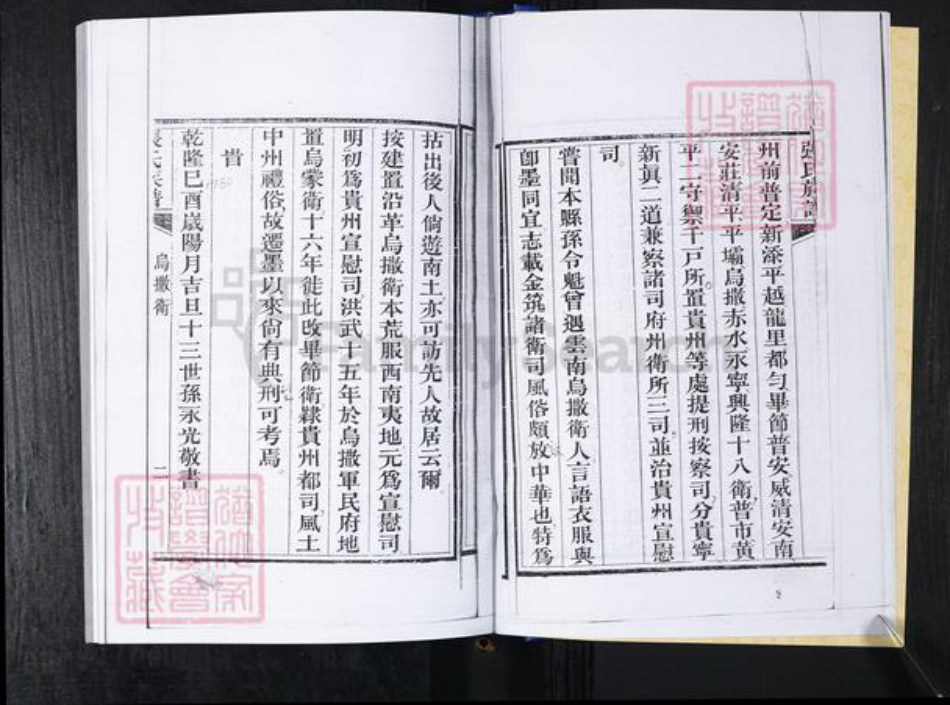 張氏族譜
州前普定新添平越龍里都勻畢節普安威清安南
安莊清平平壩烏撒赤水永寧興隆十八衛普市黃
平二守禦千戶所置貴州等處提刑按察司分貴寧
新眞二道兼察諸司府州衛所三司並治貴州宣慰
司
嘗聞本縣孫令魁曾遇雲南烏撒衛人言語衣服與
卽墨同宜志載金筑諸衛司風俗頗放中華也特爲
拈出後人倘遊南土亦可訪先人故居云爾
按建置沿革烏撒衛本荒服西南夷地元爲宣慰司
明初爲貴州宣慰司洪武十五年於烏撒軍民府地
置烏蒙衛十六年徙此改畢節衛隸貴州都司風土
中州禮俗故遷墨以來尙有典刑可考焉
旹
乾隆己酉歲陽月吉旦十三世孫永光敬書
張氏族譜
烏撒衛
二
FamilySearch